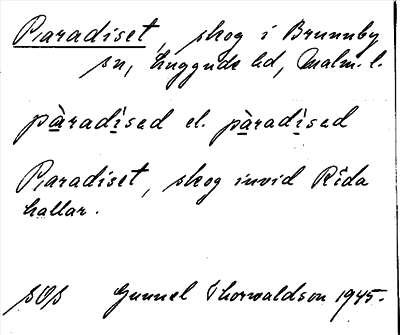 Paradiset, skog i Brunnby
sn, Luggude hd, Malm. l.
pàradised el. pàradised
Paradiset, skog invid Rida
hallar.
sOs Gunnel Thorwaldson 1945.